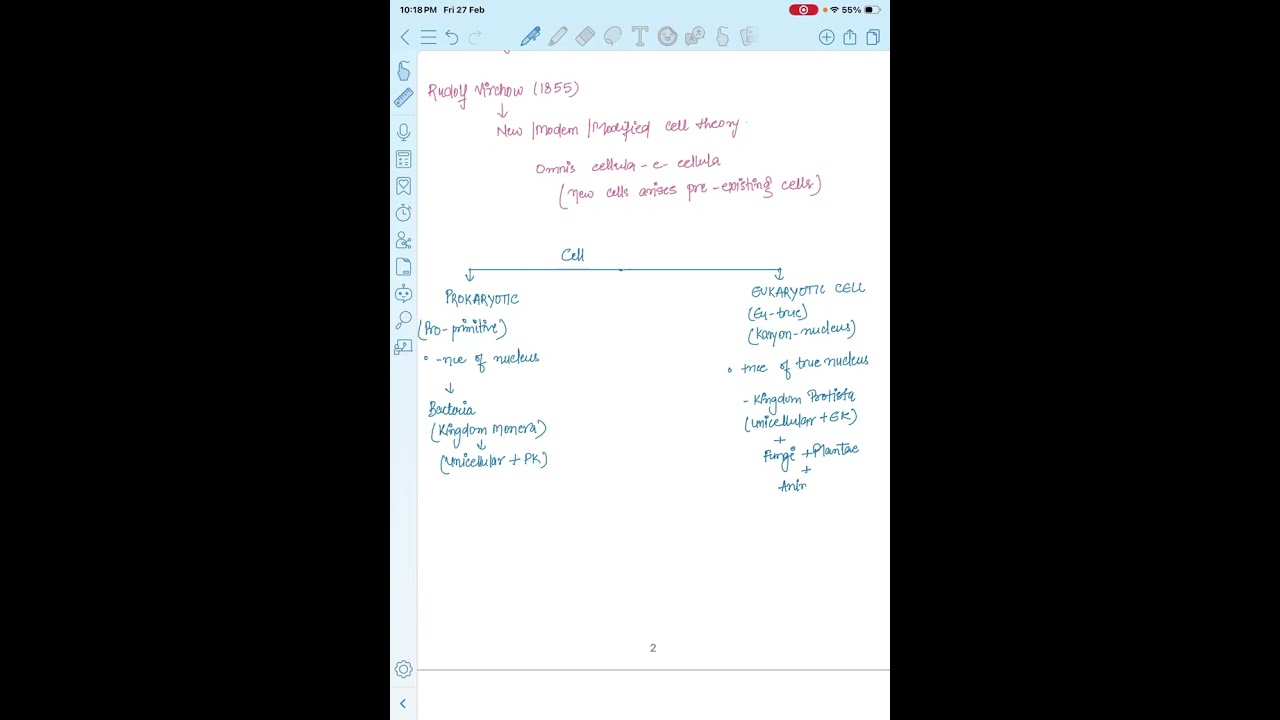 10:18 PM Fri 27 Feb
55%
Rudolf Virchow (1855)
New /Modern /Modified cell theory.
Omnis cellula-e-cellula
(New cells arises pre-existing cells)
Cell
PROKARYOTIC
(Pro-primitive)
-nce of nucleus
Bacteria
(Kingdom Monera)
(Unicellular + PK)
EUKARYOTIC CELL
(Eu-true)
(Karyon-nucleus)
+nce of true nucleus
- Kingdom Protista
(Unicellular + EK)
+
Fungi + Plantae
+
Anim
2